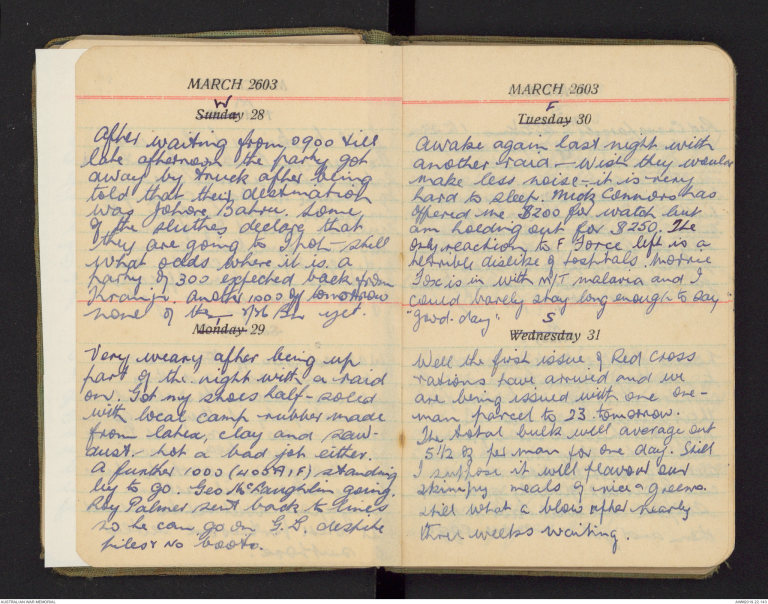 MARCH 2603
W
Sunday 28
After waiting from 0900 till
late afternoon the party got
away by truck after being
told that their destination
was Johore Bahru. Some
of the sluths declare that
they are going to Ipoh - still
what odds where it is. A
party of 300 expected back from
Kranji. Another 1000 off tomorrow
none of the Bn yet.
Monday 29
Very weary after being up
part of the night with a raid
on. Got my shoes half-soled
with local camp rubber made
from latex, clay and saw-
dust. Not a bad job either.
A further 1000 (400 AIF) standing
by to go. Geo McLaughlin going.
Roy Palmer sent back to lines
so he can go on G.D. despite
piles & no boots.
MARCH 2603
F
Tuesday 30
Awake again last night with
another raid - wish they would
make less noise - it is very
hard to sleep. Mick Connors has
offered me $200 for watch but
am holding out for $250. The
only reaction to F Force left is a
terrible dislike of hospitals. Morrie
Fox is in with M/T malaria and I
could barely stay long enough to say
"good-day".
S
Wednesday 31
Well the first issue of Red Cross
rations have arrived and we
are being issued with one one-
man parcel to 23 tomorrow.
The total bulk will average out
5 1/2 oz per man for one day. Still
I suppose it will flavour our
skimpy meals of rice & greens.
Still what a blow after nearly
three weeks waiting.
AUSTRALIAN WAR MEMORIAL